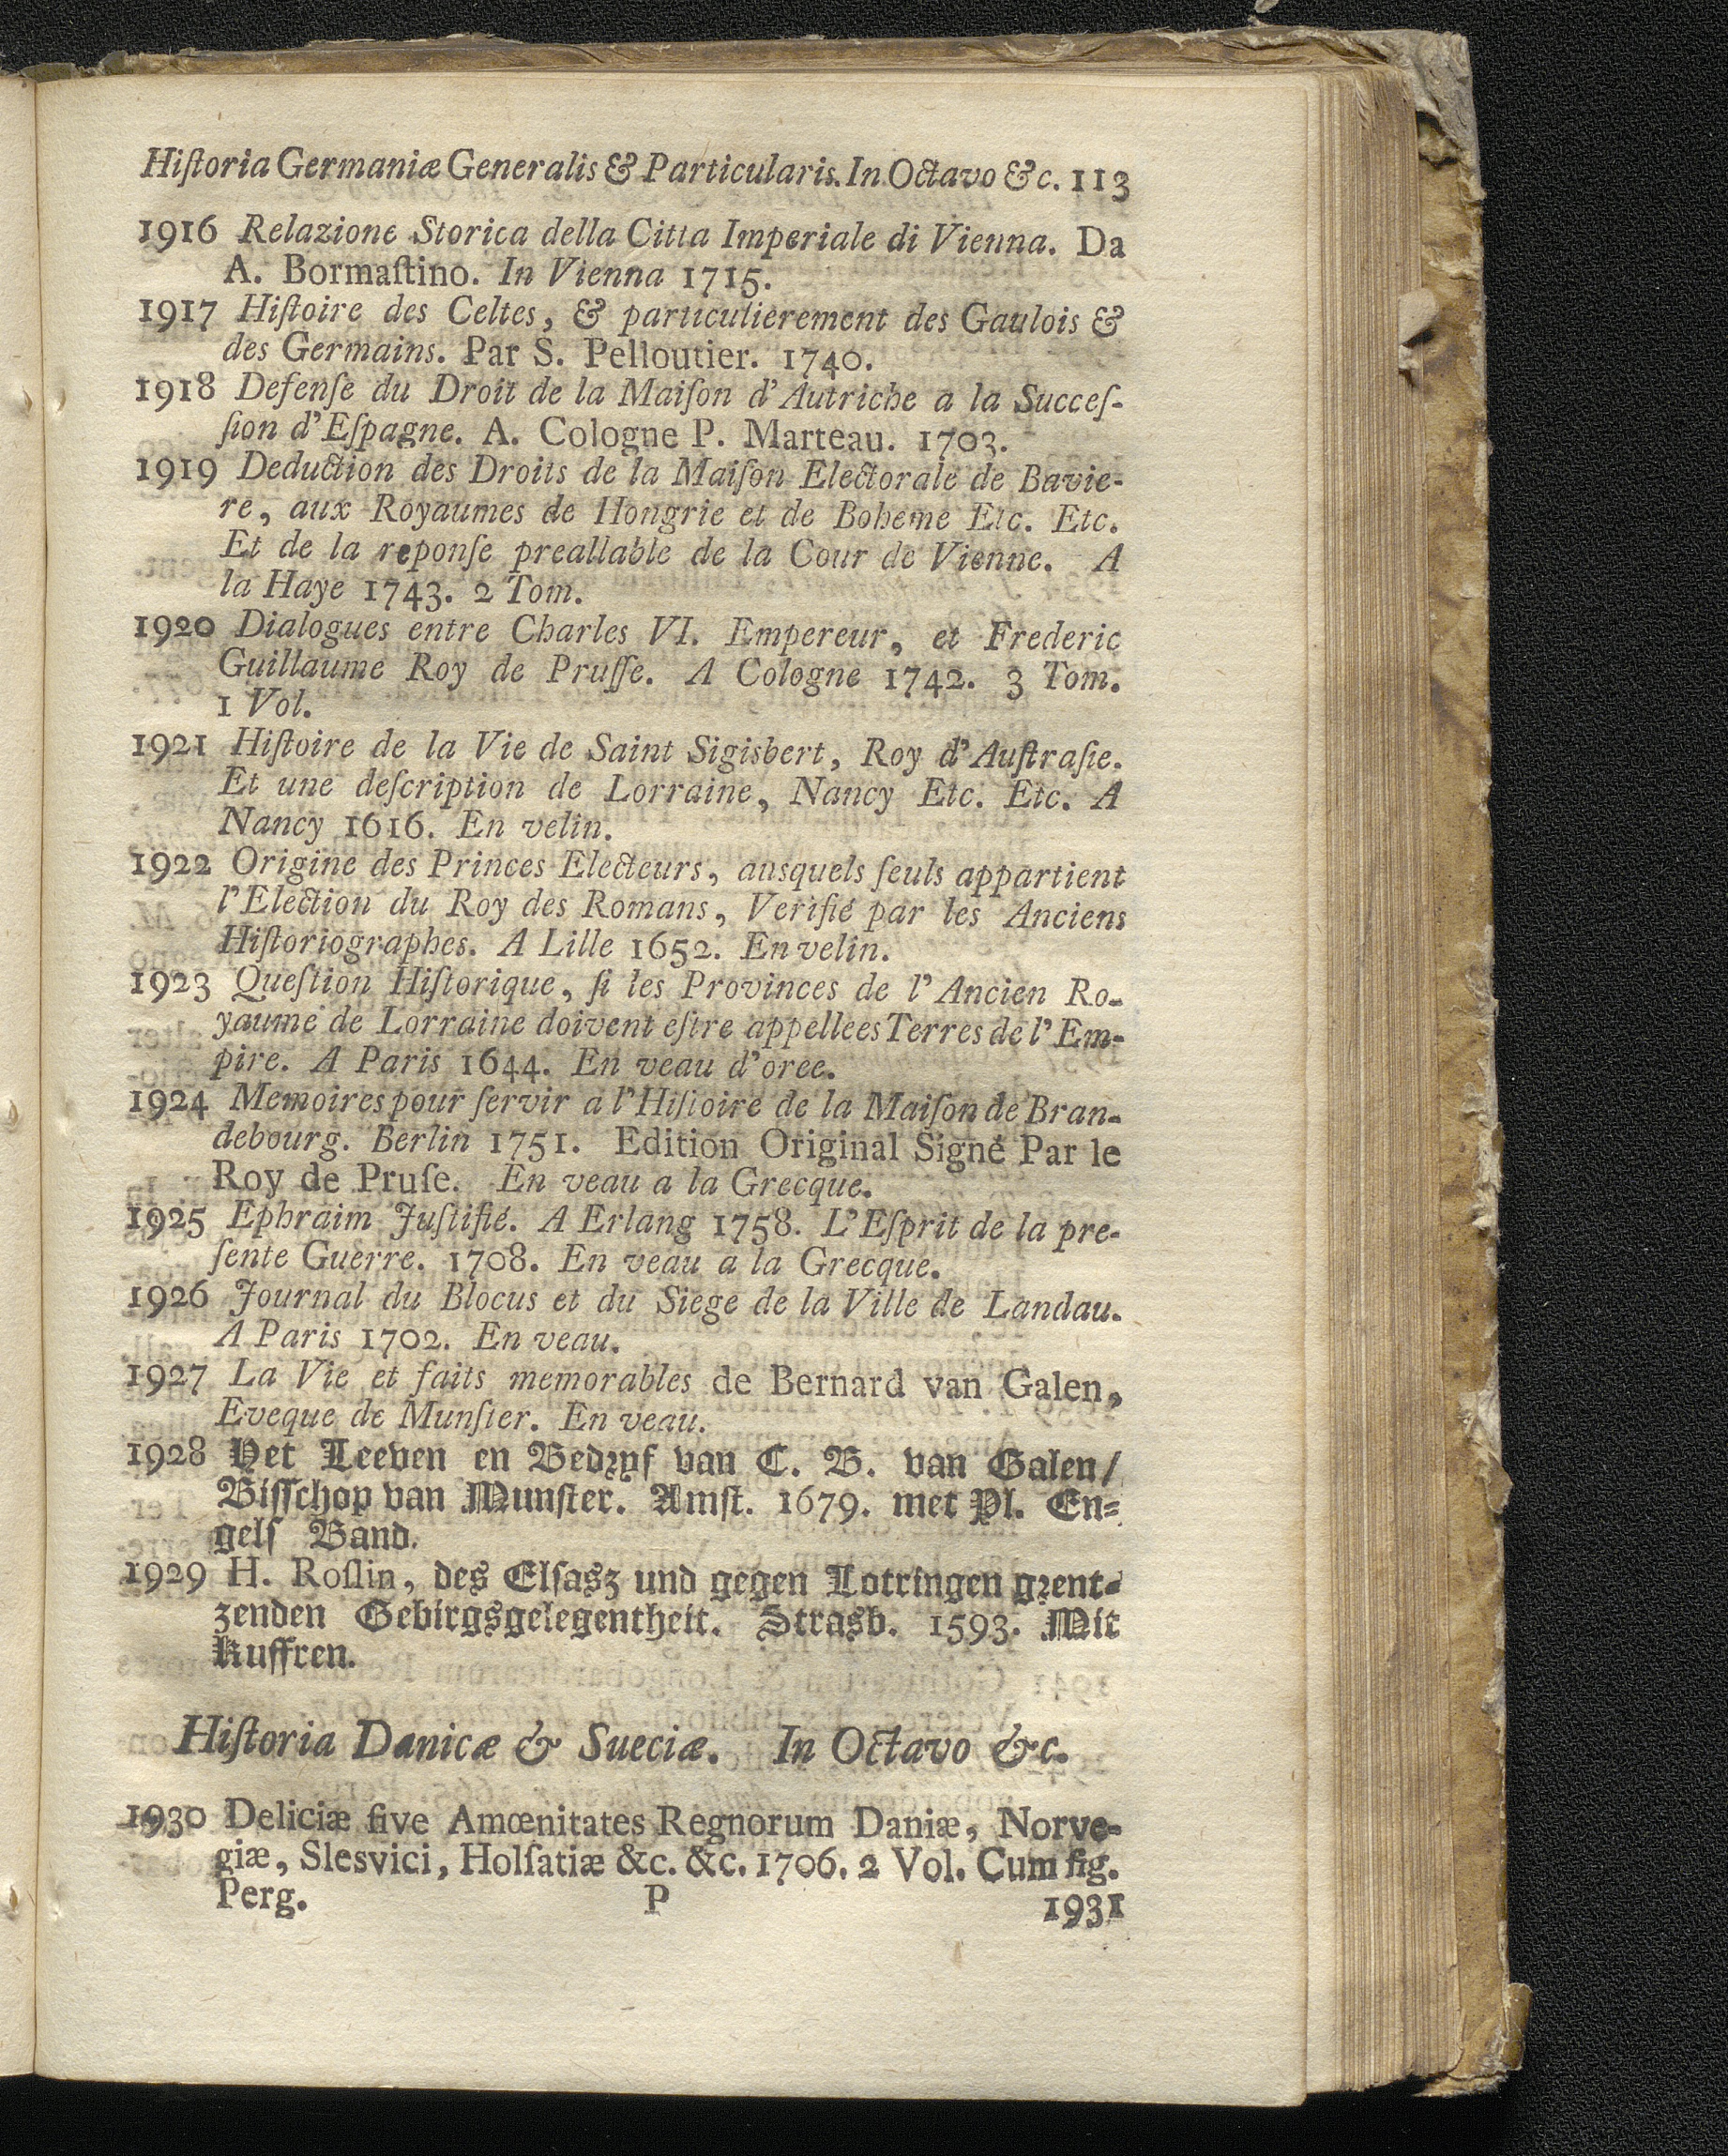 Hiſtoria Germaniæ Generalis & Particularis. In Octavo &c. 113
1916 Relazione Storica della Citta Imperiale di Vienna. Da
A. Bormaſtino. In Vienna 1715.
1917 Hiſtoire des Celtes, & particulierement des Gaulois &
des Germains. Par S. Pelloutier. 1740.
1918 Defenſe du Droit de la Maiſon d'Autriche a la Succeſ-
ſion d'Eſpagne. A. Cologne P. Marteau. 1703.
1919 Deduction des Droits de la Maiſon Electorale de Bavie-
re, aux Royaumes de Hongrie et de Boheme Etc. Etc.
Et de la reponſe preallable de la Cour de Vienne. A
la Haye 1743. 2 Tom.
1920 Dialogues entre Charles VI. Empereur, et Frederic
Guillaume Roy de Pruſſe. A Cologne 1742. 3 Tom.
1 Vol.
1921 Hiſtoire de la Vie de Saint Sigisbert, Roy d'Auſtraſie.
Et une deſcription de Lorraine, Nancy Etc. Etc. A
Nancy 1616. En velin.
1922 Origine des Princes Electeurs, ausquels ſeuls appartient
l'Election du Roy des Romans, Verifié par les Anciens
Hiſtoriographes. A Lille 1652. En velin.
1923 Queſtion Hiſtorique, ſi les Provinces de l'Ancien Ro-
yaume de Lorraine doivent eſtre appellees Terres de l'Em-
pire. A Paris 1644. En veau d'oree.
1924 Memoires pour ſervir a l'Hiſtoire de la Maiſon de Bran-
debourg. Berlin 1751. Edition Original Signé Par le
Roy de Pruſe. En veau a la Grecque.
1925 Ephraim Juſtifié. A Erlang 1758. L'Eſprit de la pre-
ſente Guerre. 1708. En veau a la Grecque.
1926 Journal du Blocus et du Siege de la Ville de Landau.
A Paris 1702. En veau.
1927 La Vie et faits memorables de Bernard van Galen,
Eveque de Munſter. En veau.
1928 Het Leeven en Bedryf van C. B. van Galen/
Biſſchop van Munſter. Amſt. 1679. met Pl. En=
gelſ Band.
1929 H. Roſlin, des Elſasz und gegen Lotringen grent=
zenden Gebirgsgelegentheit. Strasb. 1593. Mit
Kuffren.
Hiſtoria Danicæ & Sueciæ. In Octavo &c.
1930 Deliciæ ſive Amœnitates Regnorum Daniæ, Norve-
giæ, Slesvici, Holſatiæ &c. &c. 1706. 2 Vol. Cum fig.
Perg. P 1931